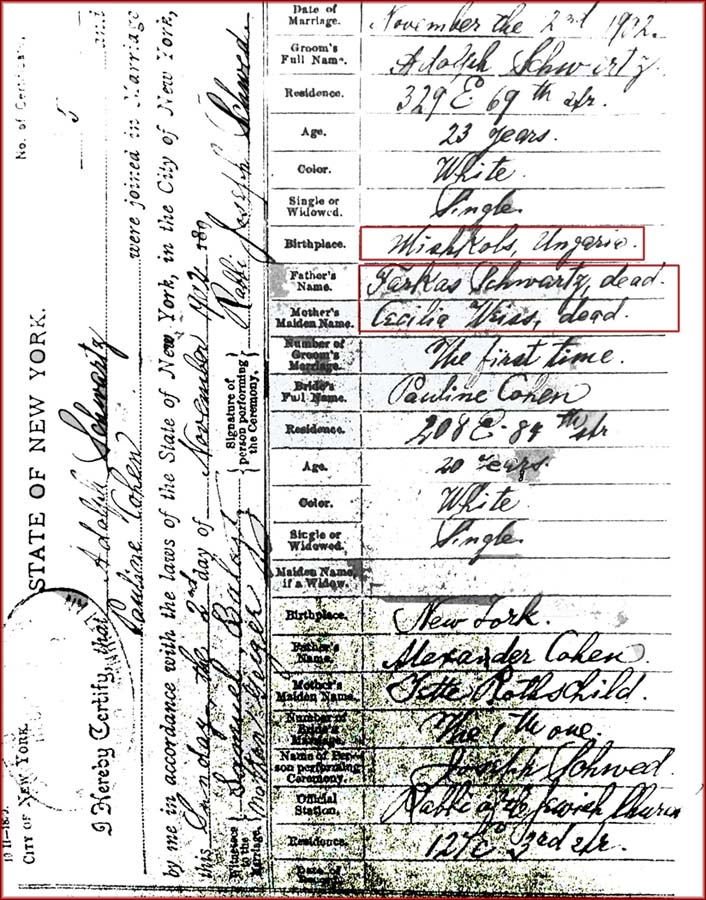 No. of Certificate,
5
STATE OF NEW YORK.
CITY OF NEW YORK.
I Hereby Certify, that Adolph Schwartz and
Pauline Cohen were joined in Marriage
by me in accordance with the laws of the State of New York, in the City of New York,
this Sunday the 2nd day of November 1902 189
Witnesses to the Marriage.
Samuel
Signature of person performing the Ceremony.
Rabbi Joseph Schwed.
Date of Marriage. November the 2nd 1902.
Groom's Full Name. Adolph Schwartz
Residence. 329 E 69th str.
Age. 23 years.
Color. White
Single or Widowed. Single
Birthplace. Mishkols, Ungaria.
Father's Name. Farkas Schwartz, dead.
Mother's Maiden Name. Cecilia Weiss, dead.
Number of Groom's Marriage. The first time.
Bride's Full Name. Pauline Cohen
Residence. 208 E. 84th str
Age. 20 years.
Color. White
Single or Widowed. Single
Maiden Name, if a Widow.
Birthplace. New York.
Father's Name. Alexander Cohen.
Mother's Maiden Name. Rothschild.
Number of Bride's Marriage. The 1th one.
Name of Person performing Ceremony. Joseph Schwed.
Official Station. Rabbi of the Jewish
Residence. 127 E 3rd str.
Date of